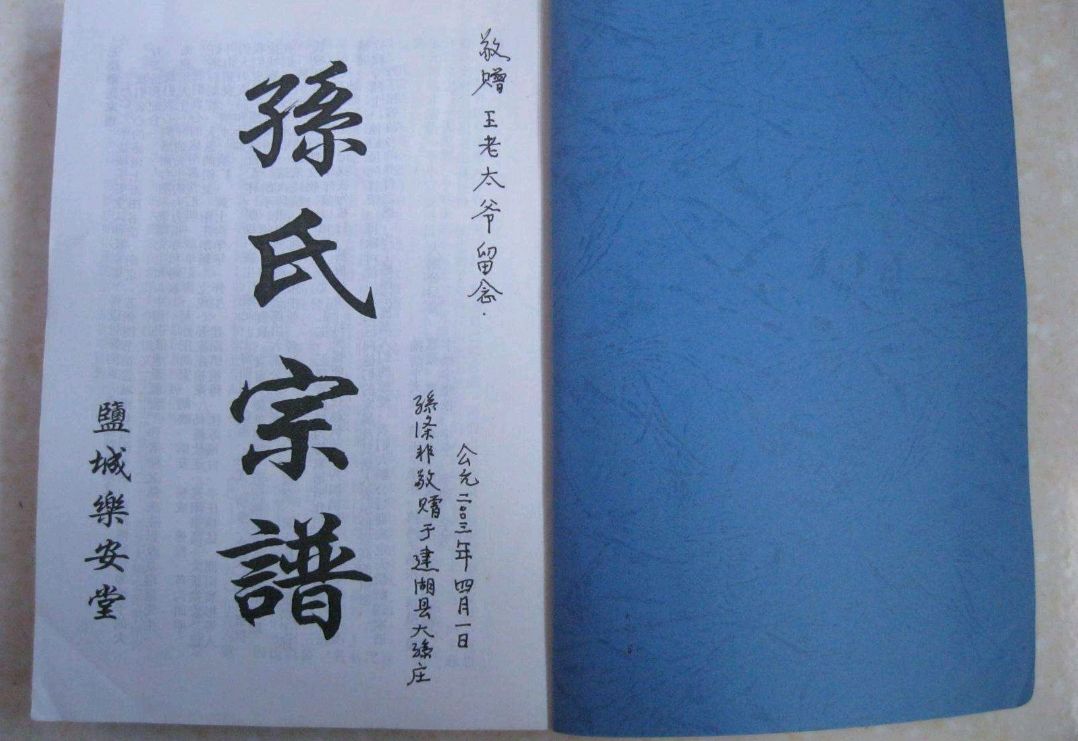 敬赠 王老太爷留念.
公元二00三年四月一日
孫涤非敬赠于建湖县大孫庄
孫氏宗譜
鹽城樂安堂